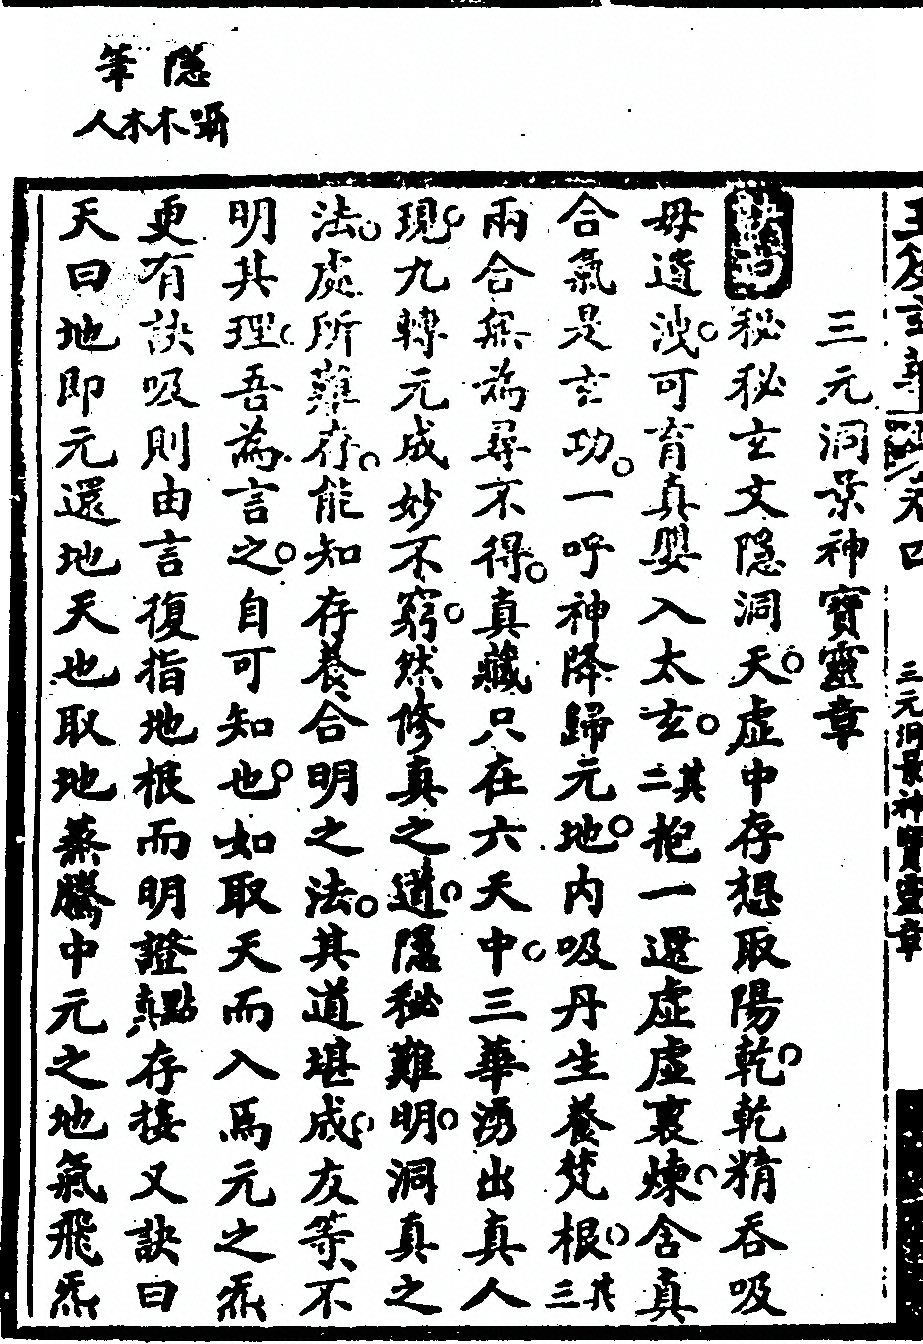 三元洞景神寶靈章
秘秘玄文隱洞天虛中存想取陽乾乾精吞吸
毋遣洩可育真嬰入太玄其二抱一還虛虛裏煉舍真
合氣是玄功一呼神降歸元地內吸丹生養梵根其三
兩合無為尋不得真藏只在六天中三華湧出真人
現九轉元成妙不窮然修真之道隱秘難明洞真之
法處所難存能知存養合明之法其道堪成友等不
明其理吾為言之自可知也如取天而入焉元之炁
更有訣吸則由言復指地根而明證真點存接又訣曰
天曰地即元還地天也取地蒸騰中元之地氣飛炁
隱囁木
筆木人
三元洞景神寶靈章